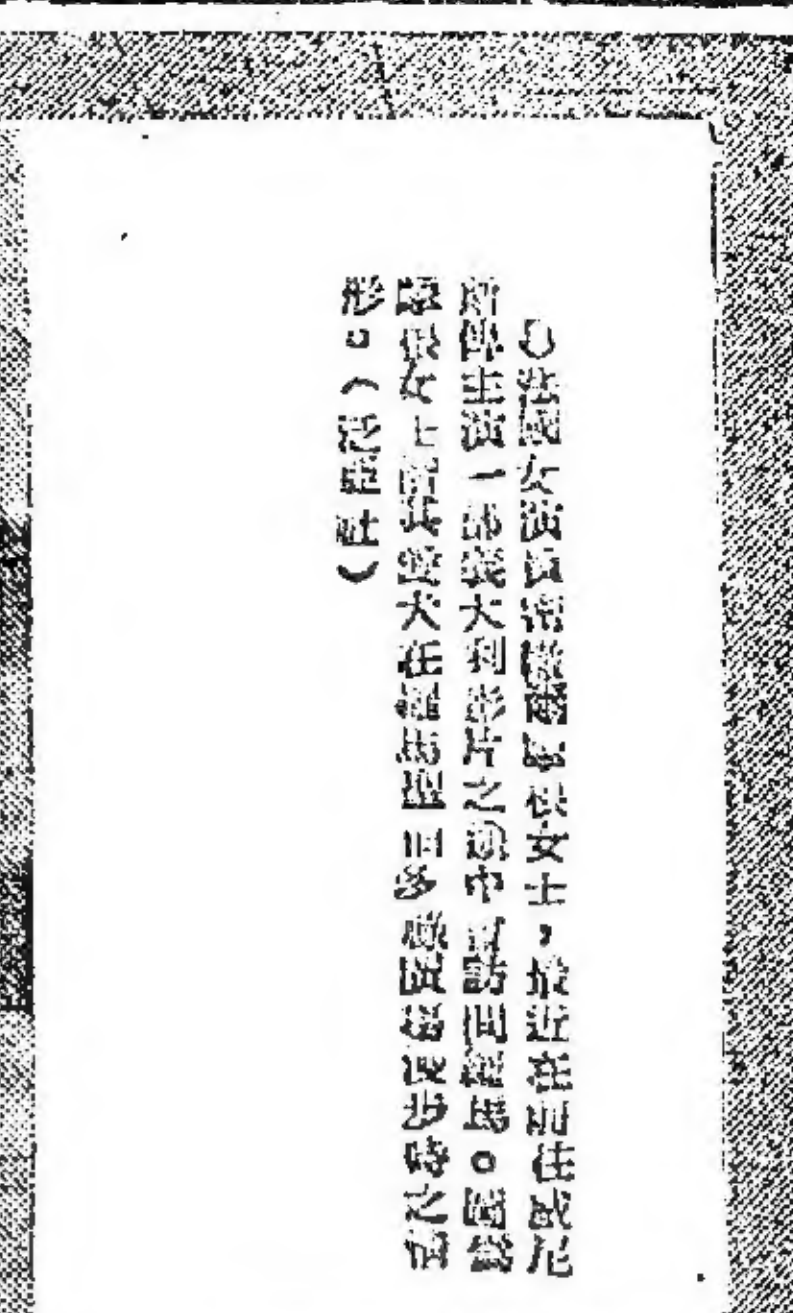 法國女演員密撤爾摩快女士，最近在前往威尼
斯拍主演一部義大利影片之途中曾訪問羅馬。圖為
摩快女士偕其愛犬在羅馬聖伯多祿廣場漫步時之情
形。（泛亞社）